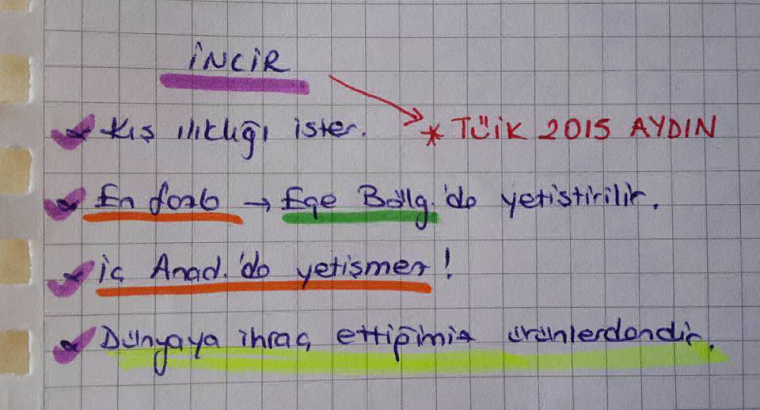 İNCİR
Kış ılıklığı ister. * TÜİK 2015 AYDIN
En fazla → Ege Bölg.'de yetiştirilir.
İç Anad.'da yetişmez!
Dünyaya ihraç ettiğimiz ürünlerdendir.